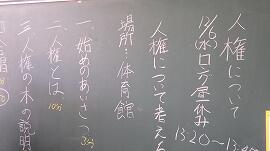 人権について
12/6(水)ロング昼休み
13:20～13:
人権について考える
場所…体育館
一、始めのあいさつ 3分
二、人権とは 10分
三、人権の木の説明